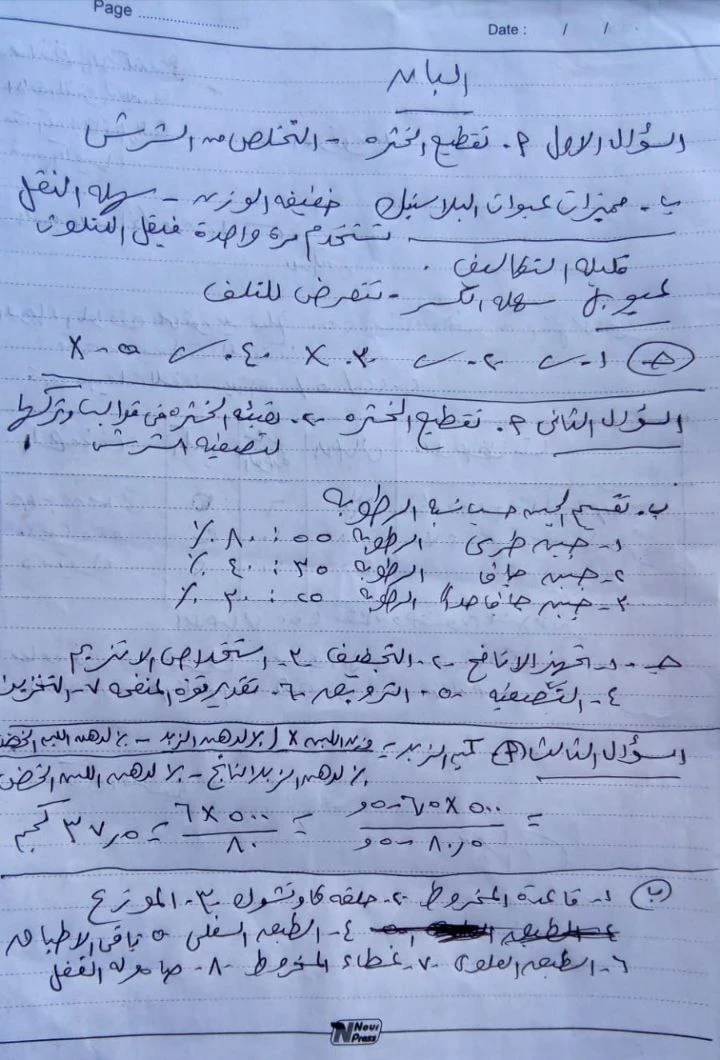 Page
Date : / /
البان
السؤال الاول أ. تقطيع الخثره - التخلص من الشرش
ب - مميزات عبوات البلاستيك خفيفه الوزن - سهله النقل
تستخدم مره واحدة فيقل التلوث
قليله التكاليف .
عيوبها سهله الكسر - تتعرض للتلف
ج ١- ✓ ٢- ✓ ٣- X ٤- ✓ ٥- X
السؤال الثانى أ. تقطيع الخثره ٢- تعبئه الخثره فى قوالب وتركها
لتصفيه الشرش
ب - تقسيم الجبن حسب نسبة الرطوبه
١- جبنه طرى الرطوبه ٥٥ : ٨٠ ٪
٢- جبن جاف الرطوبه ٣٥ : ٤٠ ٪
٣- جبن جاف جداً الرطوبه ٢٥ : ٣٠ ٪
ج - ١- تجهيز الانافح ٢- التجفيف ٣- استخلاص الانزيم
٤- التصفيه ٥- الترويق ٦- تقدير قوة المنفحه ٧- التخزين
السؤال الثالث (أ) كميه الزبد = وزن اللبن X (٪ لدهن الزبد - ٪ لدهن اللبن الخض
٪ لدهن الزبد الناتج - ٪ لدهن اللبن الخض
= ٥٠٠ X ٦٫٥ - ٠٫٥ = ٥٠٠ X ٦ = ٣٧٫٥ كجم
٨٠٫٥ - ٠٫٥ ٨٠
(ب) ١- قاعدة المخروط ٢- حلقه كاوتشوك ٣- الموزع
٤- الطبق السفلى ٥ باقى الاطباق
٦- الطبق العلوى ٧- غطاء المخروط ٨- صاموله القفل
Nour Press